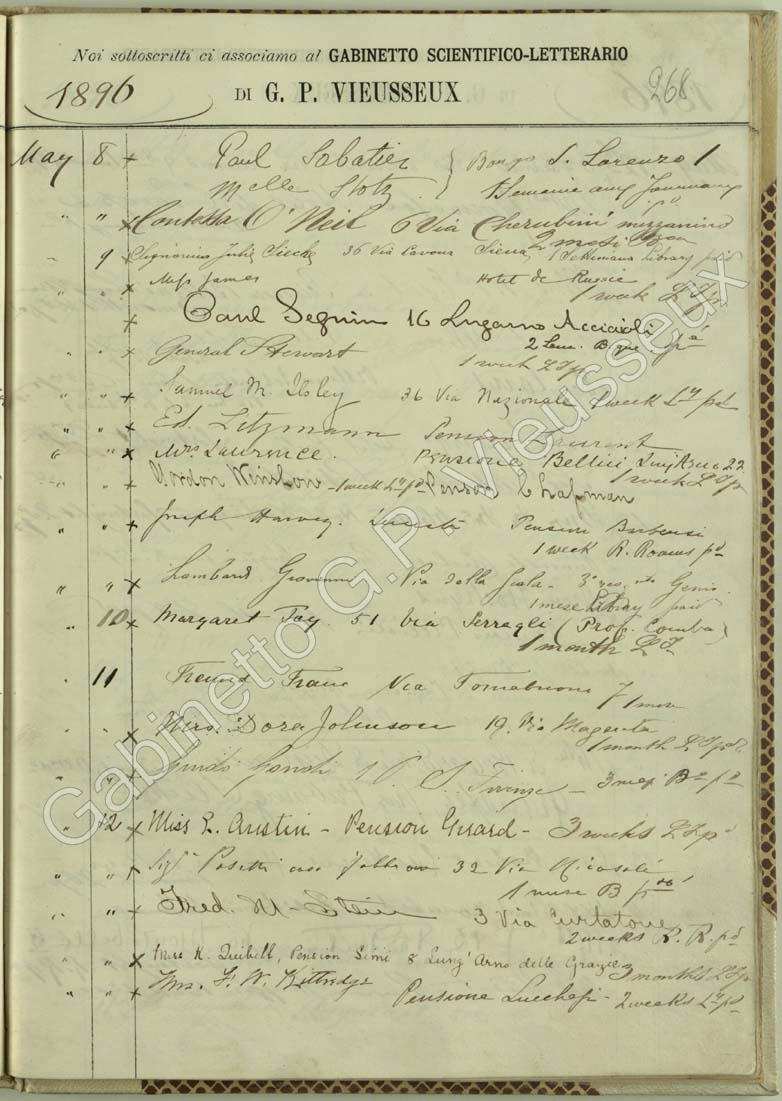 Noi sottoscritti ci associamo al GABINETTO SCIENTIFICO-LETTERARIO
1896 DI G. P. VIEUSSEUX 268
May 8 x Paul Sabatier } Borgo S. Lorenzo 1
Melle Stotz 1 Semaine aux Journaux
" " x Contessa O'Neil 6 Via Cherubini mezzanino
2 mesi
9 x 36 Via Cavour Siena 1 Settimana Library paid
" x Miss James Hotel de Russie
1 week L & J pd
x Paul Seguin 16 Lungarno Acciaioli
" " x General Stewart 2 Sem.
1 week L J pd
" " x Samuel M. Ilsley 36 Via Nazionale 1 week Ly pd
" " x Ed. Litzmann Pension Laurent
" " x Mrs Lawrence. Pensione Bellini Lung'Arno 22
1 week L J pd
" " x Gordon Winslow - 1 week Ly pd Pension Chapman
" " x Joseph Harvey. Pension Barbensi
1 week R. Rooms pd
" " x Lombardi Giovanni Via della Scala - 3º Genio
1 mese Library paid
" 10 x Margaret Foy. 51 Via Serragli (Prof. Comba)
1 month L J
" 11 Via Tornabuoni 7 1 mese
" " x Mrs. Dora Johnson 19. Via Magenta
1 month L J pd
" " x Guido S. Firenze - 3 mesi Bº pº
" 12 x Miss L. Austin - Pension Girard - 3 weeks L J pd
" " x 32 Via Ricasoli
1 mese B
" " x Fred. M. Stein 3 Via Curtatone
2 weeks R. R. pd
" " x Miss K. Quibell, Pension Simi 8 Lung' Arno delle Grazie 3 months L J pd
" " x Mrs. F. W. Kittredge
Pensione Lucchesi - 2 weeks Ly pd
Gabinetto G.P. Vieusseux